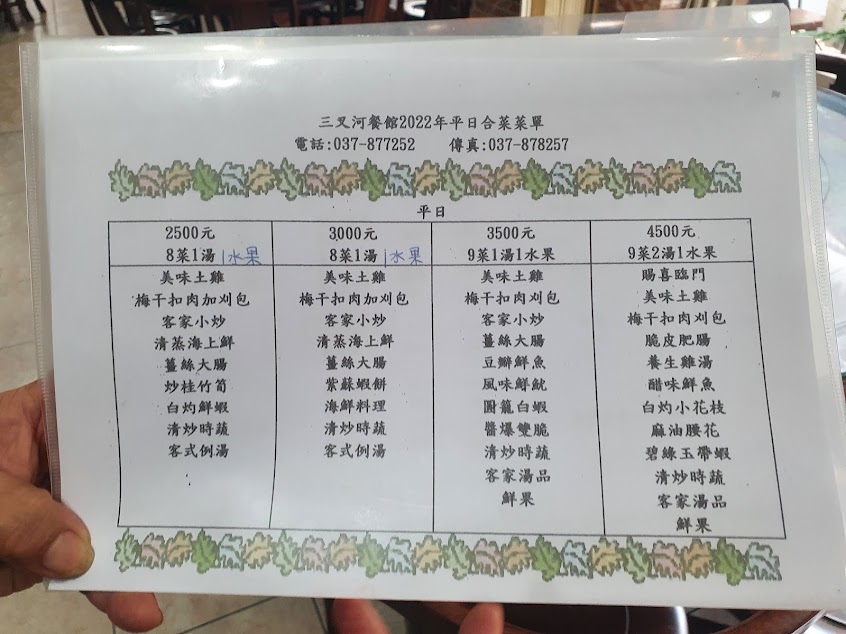 三叉河餐館2022年平日合菜菜單
電話:037-877252 傳真:037-878257
平日
2500元 3000元 3500元 4500元
8菜1湯 1水果 8菜1湯 1水果 9菜1湯1水果 9菜2湯1水果
美味土雞 美味土雞 美味土雞 賜喜臨門
梅干扣肉加刈包 梅干扣肉加刈包 梅干扣肉加刈包 美味土雞
客家小炒 客家小炒 客家小炒 梅干扣肉刈包
清蒸海上鮮 清蒸海上鮮 薑絲大腸 脆皮肥腸
薑絲大腸 薑絲大腸 豆瓣鮮魚 養生雞湯
炒桂竹筍 紫蘇蝦餅 風味鮮魷 醋味鮮魚
白灼鮮蝦 海鮮料理 圓籠白蝦 白灼小花枝
清炒時蔬 清炒時蔬 醬爆雙脆 麻油腰花
客式例湯 客式例湯 清炒時蔬 碧綠玉帶蝦
客家湯品 清炒時蔬
鮮果 客家湯品
鮮果